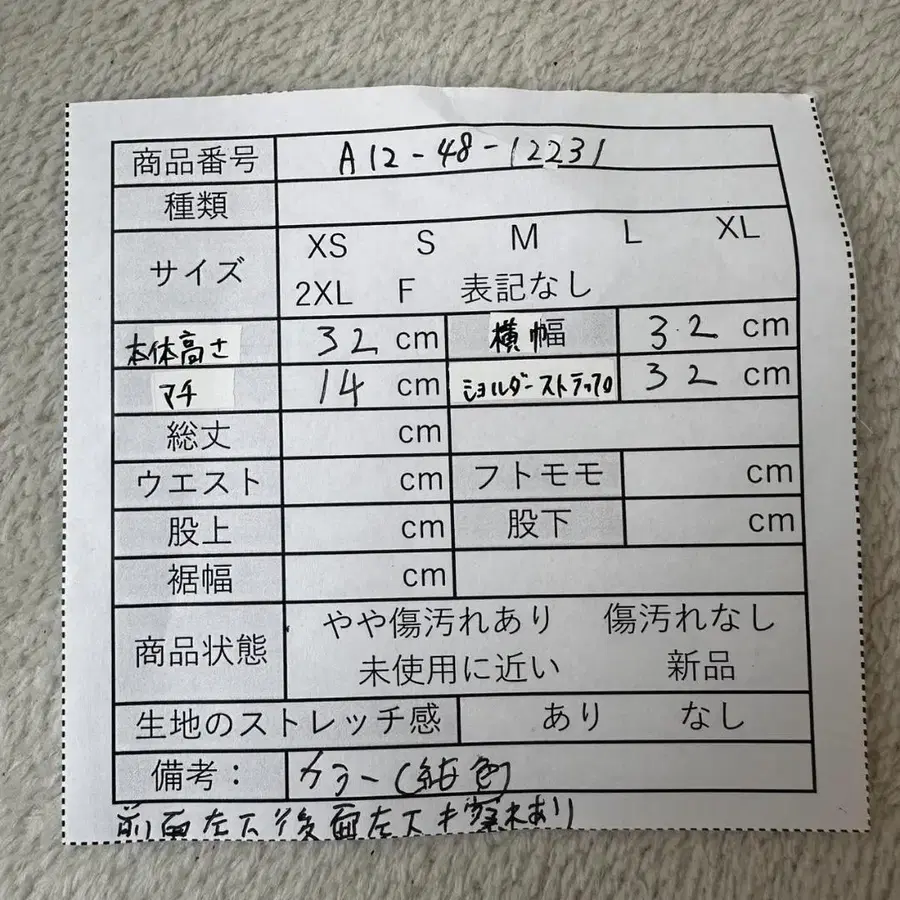 商品番号 A12-48-12231
種類
サイズ XS S M L XL
2XL F 表記なし
本体高さ 32 cm 横幅 32 cm
マチ 14 cm ショルダーストラップ 32 cm
総丈 cm
ウエスト cm フトモモ cm
股上 cm 股下 cm
裾幅 cm
商品状態 やや傷汚れあり 傷汚れなし
未使用に近い 新品
生地のストレッチ感 あり なし
備考: カラー(紺色)
前面左下後面左下